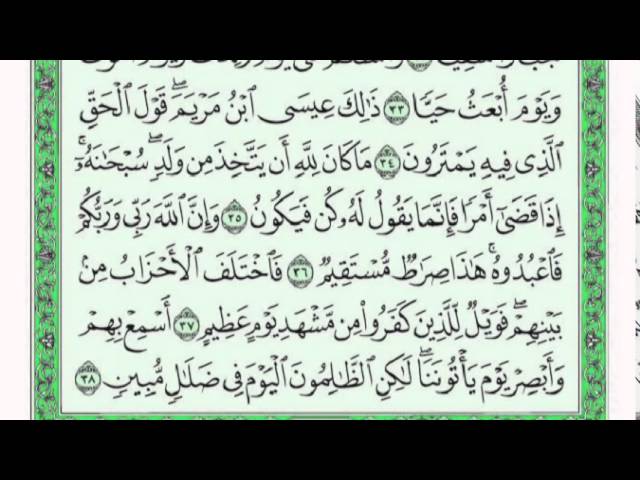 وَيَوْمَ أُبْعَثُ حَيًّا ٣٣ ذَٰلِكَ عِيسَى ٱبْنُ مَرْيَمَ ۖ قَوْلَ ٱلْحَقِّ
ٱلَّذِى فِيهِ يَمْتَرُونَ ٣٤ مَا كَانَ لِلَّهِ أَن يَتَّخِذَ مِن وَلَدٍ ۖ سُبْحَٰنَهُۥٓ ۚ
إِذَا قَضَىٰٓ أَمْرًا فَإِنَّمَا يَقُولُ لَهُۥ كُن فَيَكُونُ ٣٥ وَإِنَّ ٱللَّهَ رَبِّى وَرَبُّكُمْ
فَٱعْبُدُوهُ ۚ هَٰذَا صِرَٰطٌ مُّسْتَقِيمٌ ٣٦ فَٱخْتَلَفَ ٱلْأَحْزَابُ مِنۢ
بَيْنِهِمْ ۖ فَوَيْلٌ لِّلَّذِينَ كَفَرُوا۟ مِن مَّشْهَدِ يَوْمٍ عَظِيمٍ ٣٧ أَسْمِعْ بِهِمْ
وَأَبْصِرْ يَوْمَ يَأْتُونَنَا ۖ لَٰكِنِ ٱلظَّٰلِمُونَ ٱلْيَوْمَ فِى ضَلَٰلٍ مُّبِينٍ ٣٨